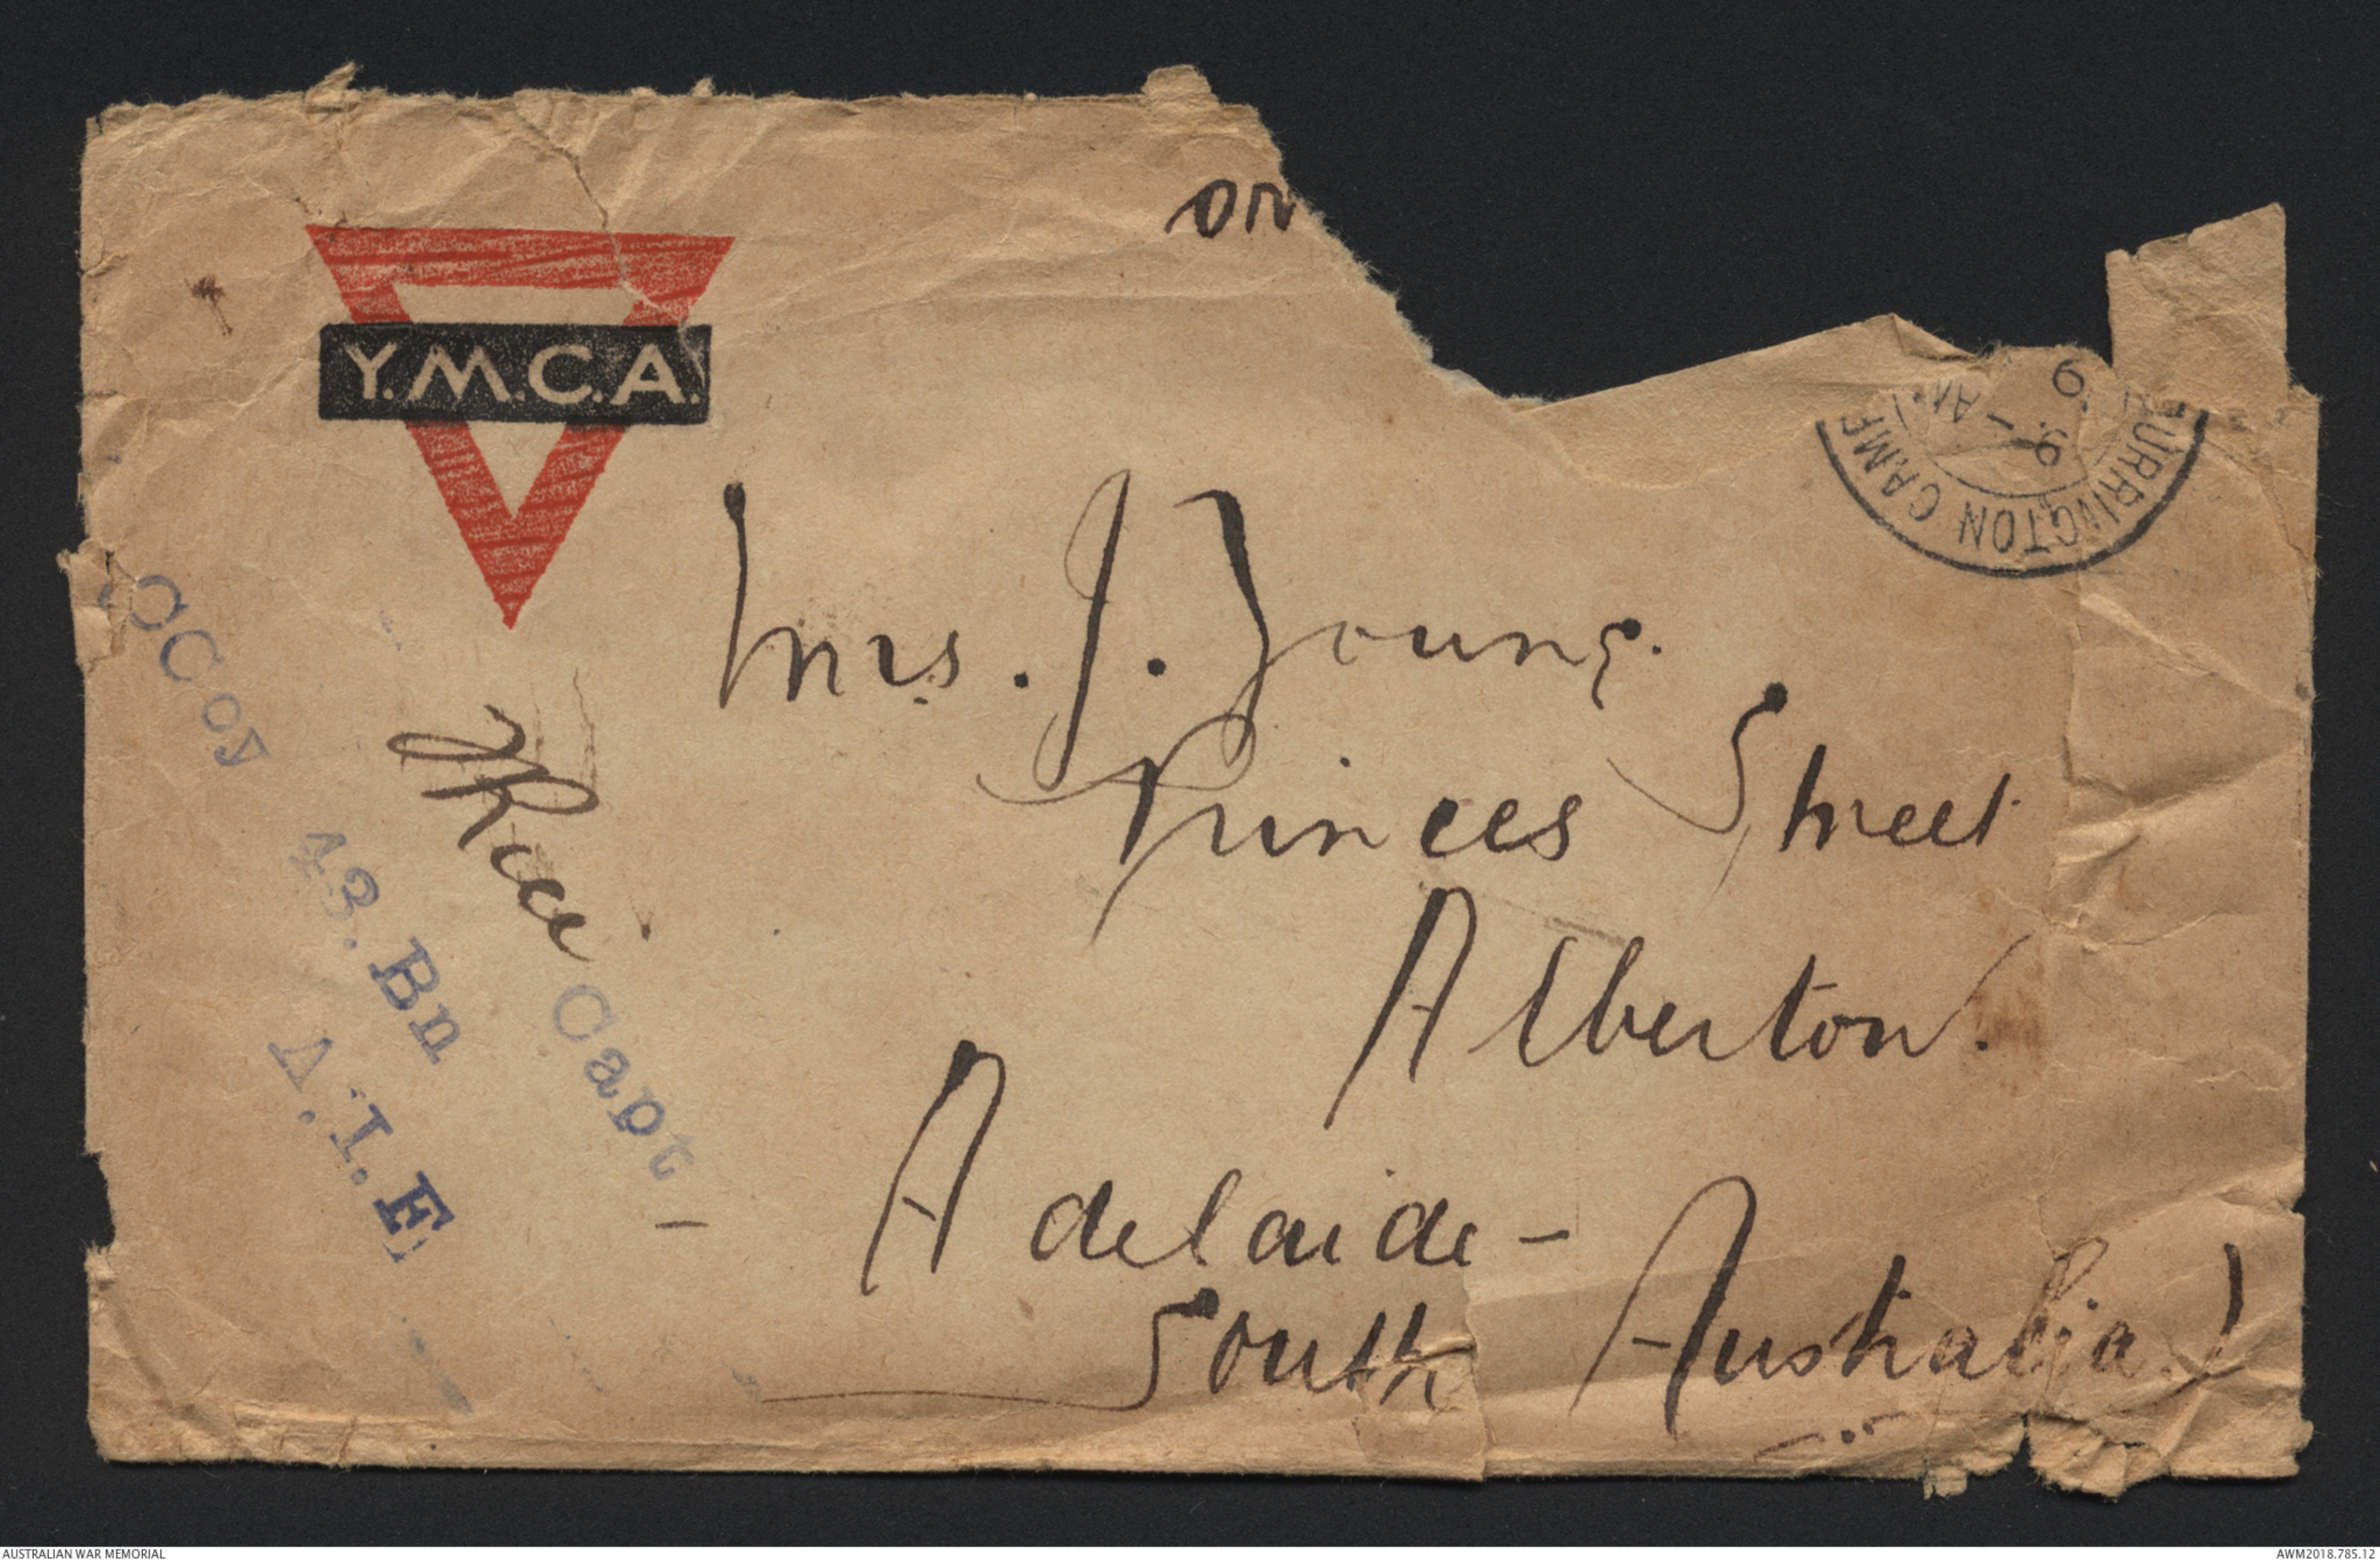 on
Y.M.C.A.
URRINGTON CAMP
9
6
Mrs. J. Young.
Princes Street
Alberton.
Adelaide -
South Australia
OC Coy
43. Bn
A.I.F
Capt
AUSTRALIAN WAR MEMORIAL
AWM2018.785.12